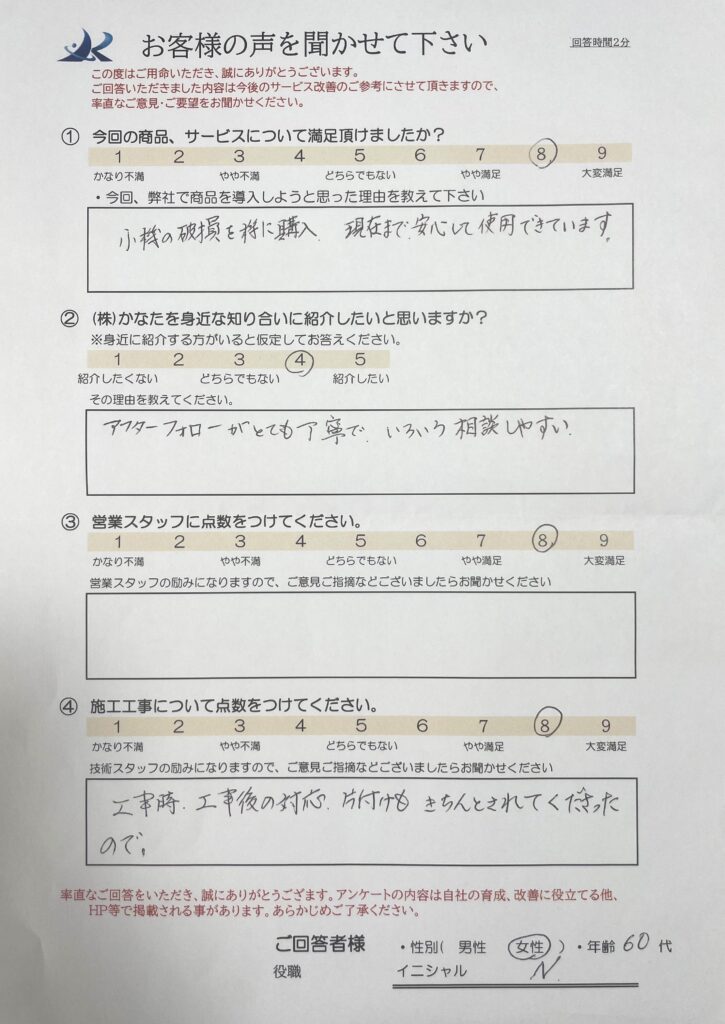 お客様の声を聞かせて下さい
回答時間2分
この度はご用命いただき、誠にありがとうございます。
ご回答いただきました内容は今後のサービス改善のご参考にさせて頂きますので、
率直なご意見・ご要望をお聞かせください。
① 今回の商品、サービスについて満足頂けましたか?
1 2 3 4 5 6 7 8 9
かなり不満 やや不満 どちらでもない やや満足 大変満足
・今回、弊社で商品を導入しようと思った理由を教えて下さい
の破損を 購入. 現在まで安心して使用できています.
② (株)かなたを身近な知り合いに紹介したいと思いますか?
※身近に紹介する方がいると仮定してお答えください。
1 2 3 4 5
紹介したくない どちらでもない 紹介したい
その理由を教えてください。
アフターフォローがとても丁寧で. いろいろ相談しやすい.
③ 営業スタッフに点数をつけてください。
1 2 3 4 5 6 7 8 9
かなり不満 やや不満 どちらでもない やや満足 大変満足
営業スタッフの励みになりますので、ご意見ご指摘などございましたらお聞かせください
④ 施工工事について点数をつけてください。
1 2 3 4 5 6 7 8 9
かなり不満 やや不満 どちらでもない やや満足 大変満足
技術スタッフの励みになりますので、ご意見ご指摘などございましたらお聞かせください
工事時. 工事後の対応. 片付けも きちんとされてくださった
ので。
率直なご回答をいただき、誠にありがとうござます。アンケートの内容は自社の育成、改善に役立てる他、
HP等で掲載される事があります。あらかじめご了承ください。
ご回答者様 ・性別( 男性 女性 ) ・年齢 60 代
役職 イニシャル N.